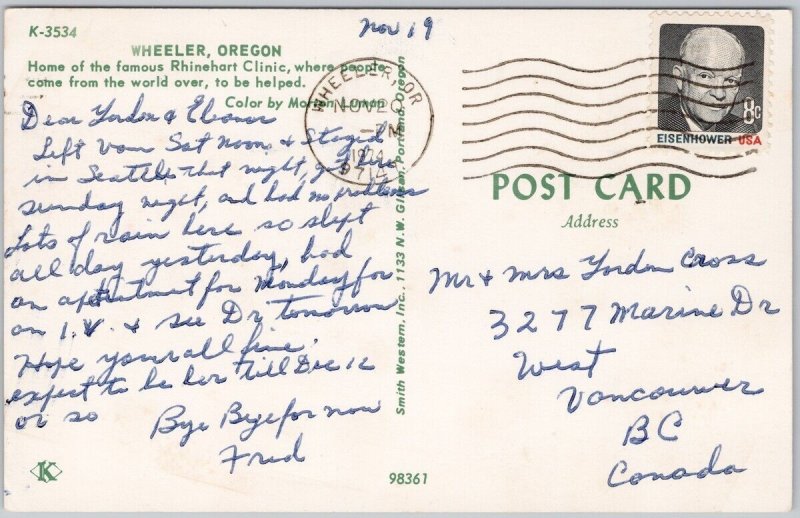 K-3534
Nov 19
WHEELER, OREGON
Home of the famous Rhinehart Clinic, where people
come from the world over, to be helped.
Color by Morian Luman
Dear Gordon & Eleanor
Left Vam Sat noon & Stayed
in Seattle that night, got here
sunday night, and had no problems
Lots of rain here so slept
all day yesterday, had
an apointment for Monday for
an I.V. & see Dr tomorrow
Hope your all fine.
expect to be her till Dec 12
or so
Bye Bye for now
Fred
K
98361
Smith Western, Inc., 1133 N.W. Glisan, Portland, Oregon
WHEELER, OR
NOV 20
PM
1974
97147
8c
EISENHOWER USA
POST CARD
Address
Mr & Mrs Gordon Cross
3277 Marine Dr
West
Vancouver
BC
Canada